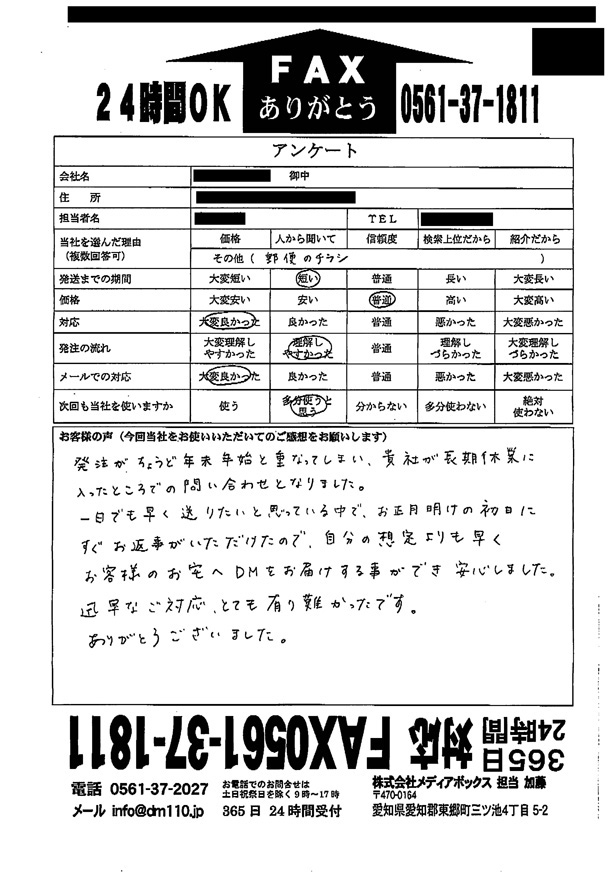 FAX
ありがとう
24時間OK
0561-37-1811
アンケート
会社名 御中
住 所
担当者名 TEL
当社を選んだ理由
(複数回答可)
価格 人から聞いて 信頼度 検索上位だから 紹介だから
その他( 郵便のチラシ )
発送までの期間 大変短い 短い 普通 長い 大変長い
価格 大変安い 安い 普通 高い 大変高い
対応 大変良かった 良かった 普通 悪かった 大変悪かった
発注の流れ 大変理解しやすかった 理解しやすかった 普通 理解しづらかった 大変理解しづらかった
メールでの対応 大変良かった 良かった 普通 悪かった 大変悪かった
次回も当社を使いますか 使う 多分使うと思う 分からない 多分使わない 絶対使わない
お客様の声(今回当社をお使いいただいてのご感想をお願いします)
発注がちょうど年末年始と重なってしまい、貴社が長期休業に
入ったところでの問い合わせとなりました。
一日でも早く送りたいと思っている中で、お正月明けの初日に
すぐお返事がいただけたので、自分の想定よりも早く
お客様のお宅へDMをお届けする事ができ安心しました。
迅早なご対応、とても有り難かったです。
ありがとうございました。
365日
24時間
対応 FAX0561-37-1811
電話 0561-37-2027
メール info@dm110.jp
お電話でのお問合せは
土日祝祭日を除く9時〜17時
365日 24時間受付
株式会社メディアボックス 担当 加藤
〒470-0164
愛知県愛知郡東郷町三ツ池4丁目5-2